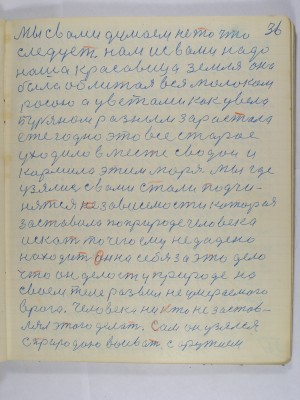 36
Мы с вами думаем не то что
следует нам и с вами надо
наша красавица земля она
была обли тая вся молоком
росою а цветами как
разным зарастала
ежегодно это все старое
уходило вместе с водой и
кормила этим моря. Мы где
узялись с вами стали подчи-
нятся независемости которая
заставала по природе человека
искат то чего ему не дадено
находит. Он на себя за это дело
что он делосту природе на
своем теле развил неумераемого
врага. Человека никто не застов-
лял этого делат. Сам он узялся
с природою воеват, с оружием